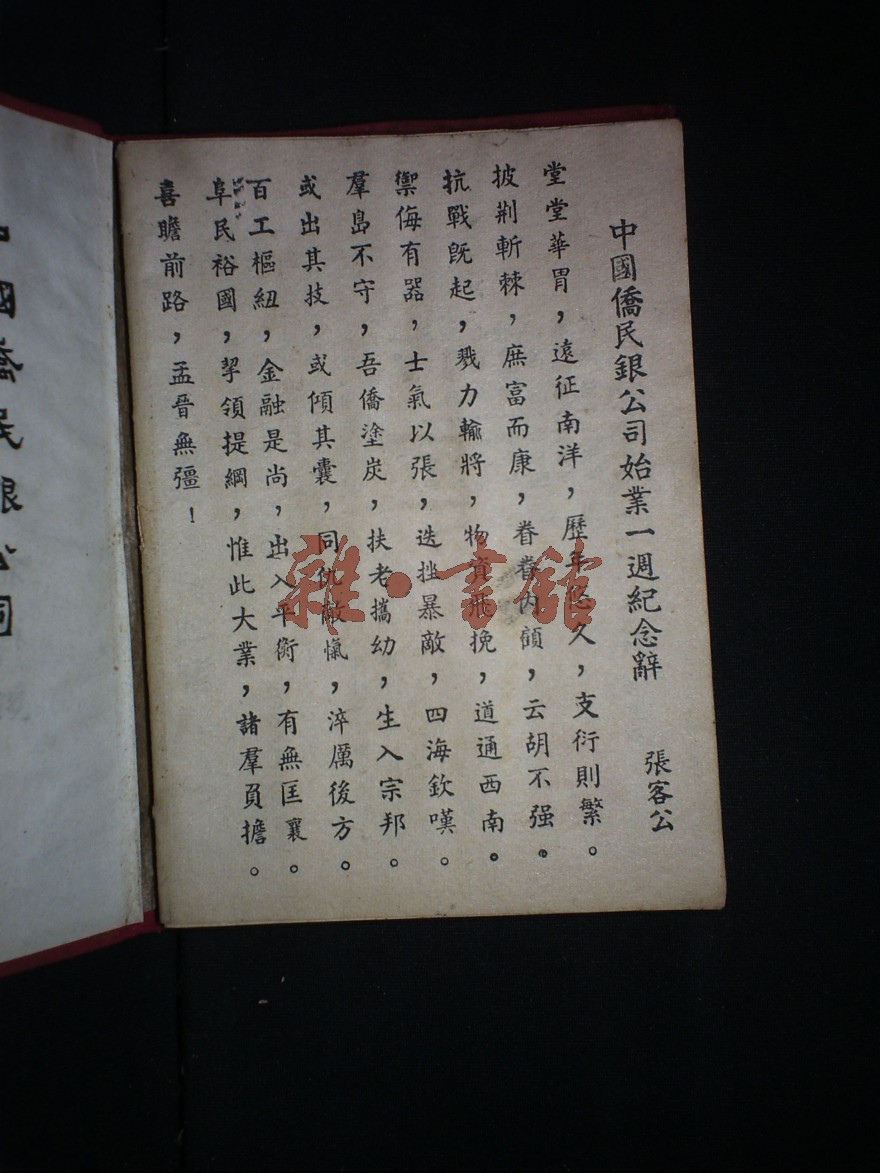 中國僑民銀公司始業一週紀念辭
張客公
堂堂華胄，遠征南洋，歷年悠久，支衍則繁。
披荆斬棘，庶富而康，眷眷內顧，云胡不强。
抗戰旣起，戮力輸將，物資飛挽，道通西南。
禦侮有器，士氣以張，迭挫暴敵，四海欽嘆。
羣島不守，吾僑塗炭，扶老攜幼，生入宗邦。
或出其技，或傾其囊，同仇敵愾，淬厲後方。
百工樞紐，金融是尚，出入平衡，有無匡襄。
阜民裕國，挈領提綱，惟此大業，諸羣負擔。
喜瞻前路，孟晉無彊！
中國僑民銀公司
雜·書館